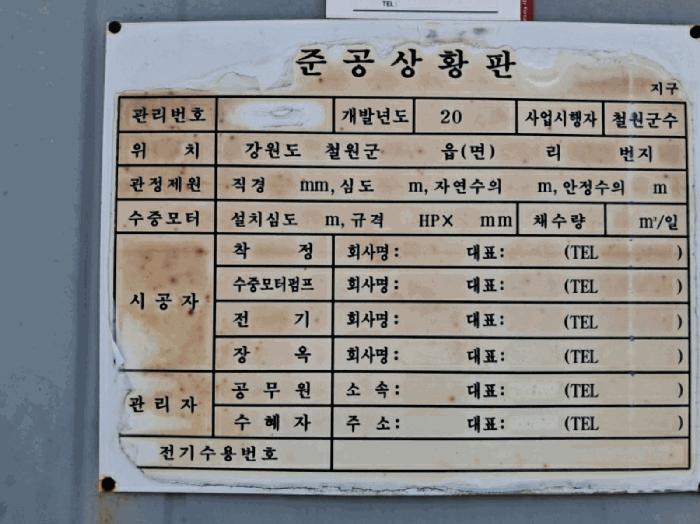 TEL :
준공상황판
지구
관리번호 개발년도 20 사업시행자 철원군수
위 치 강원도 철원군 읍(면) 리 번지
관정제원 직경 mm, 심도 m, 자연수의 m, 안정수의 m
수중모터 설치심도 m, 규격 HP× mm 채수량 m³/일
시공자
착 정 회사명: 대표: (TEL )
수중모터펌프 회사명: 대표: (TEL )
전 기 회사명: 대표: (TEL )
장 옥 회사명: 대표: (TEL )
관리자
공무원 소 속: 대표: (TEL )
수혜자 주 소: 대표: (TEL )
전기수용번호